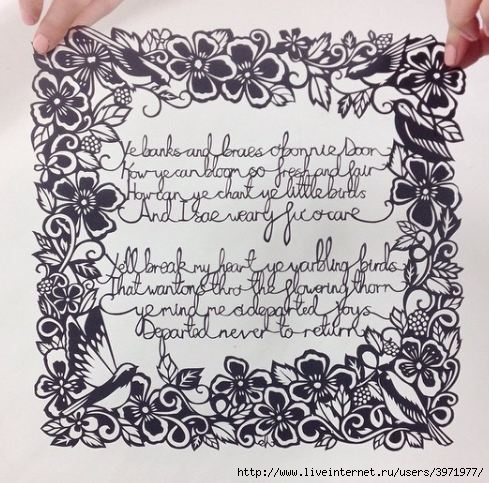 Ye banks and braes o bonnie Doon
How ye can bloom so fresh and fair
How can ye chant ye little birds
And I sae weary fu o care
Yell break my heart ye warbling birds
That wantons thro the flowering thorn
ye mind me o departed joys
Departed never to return
http://www.liveinternet.ru/users/3971977/